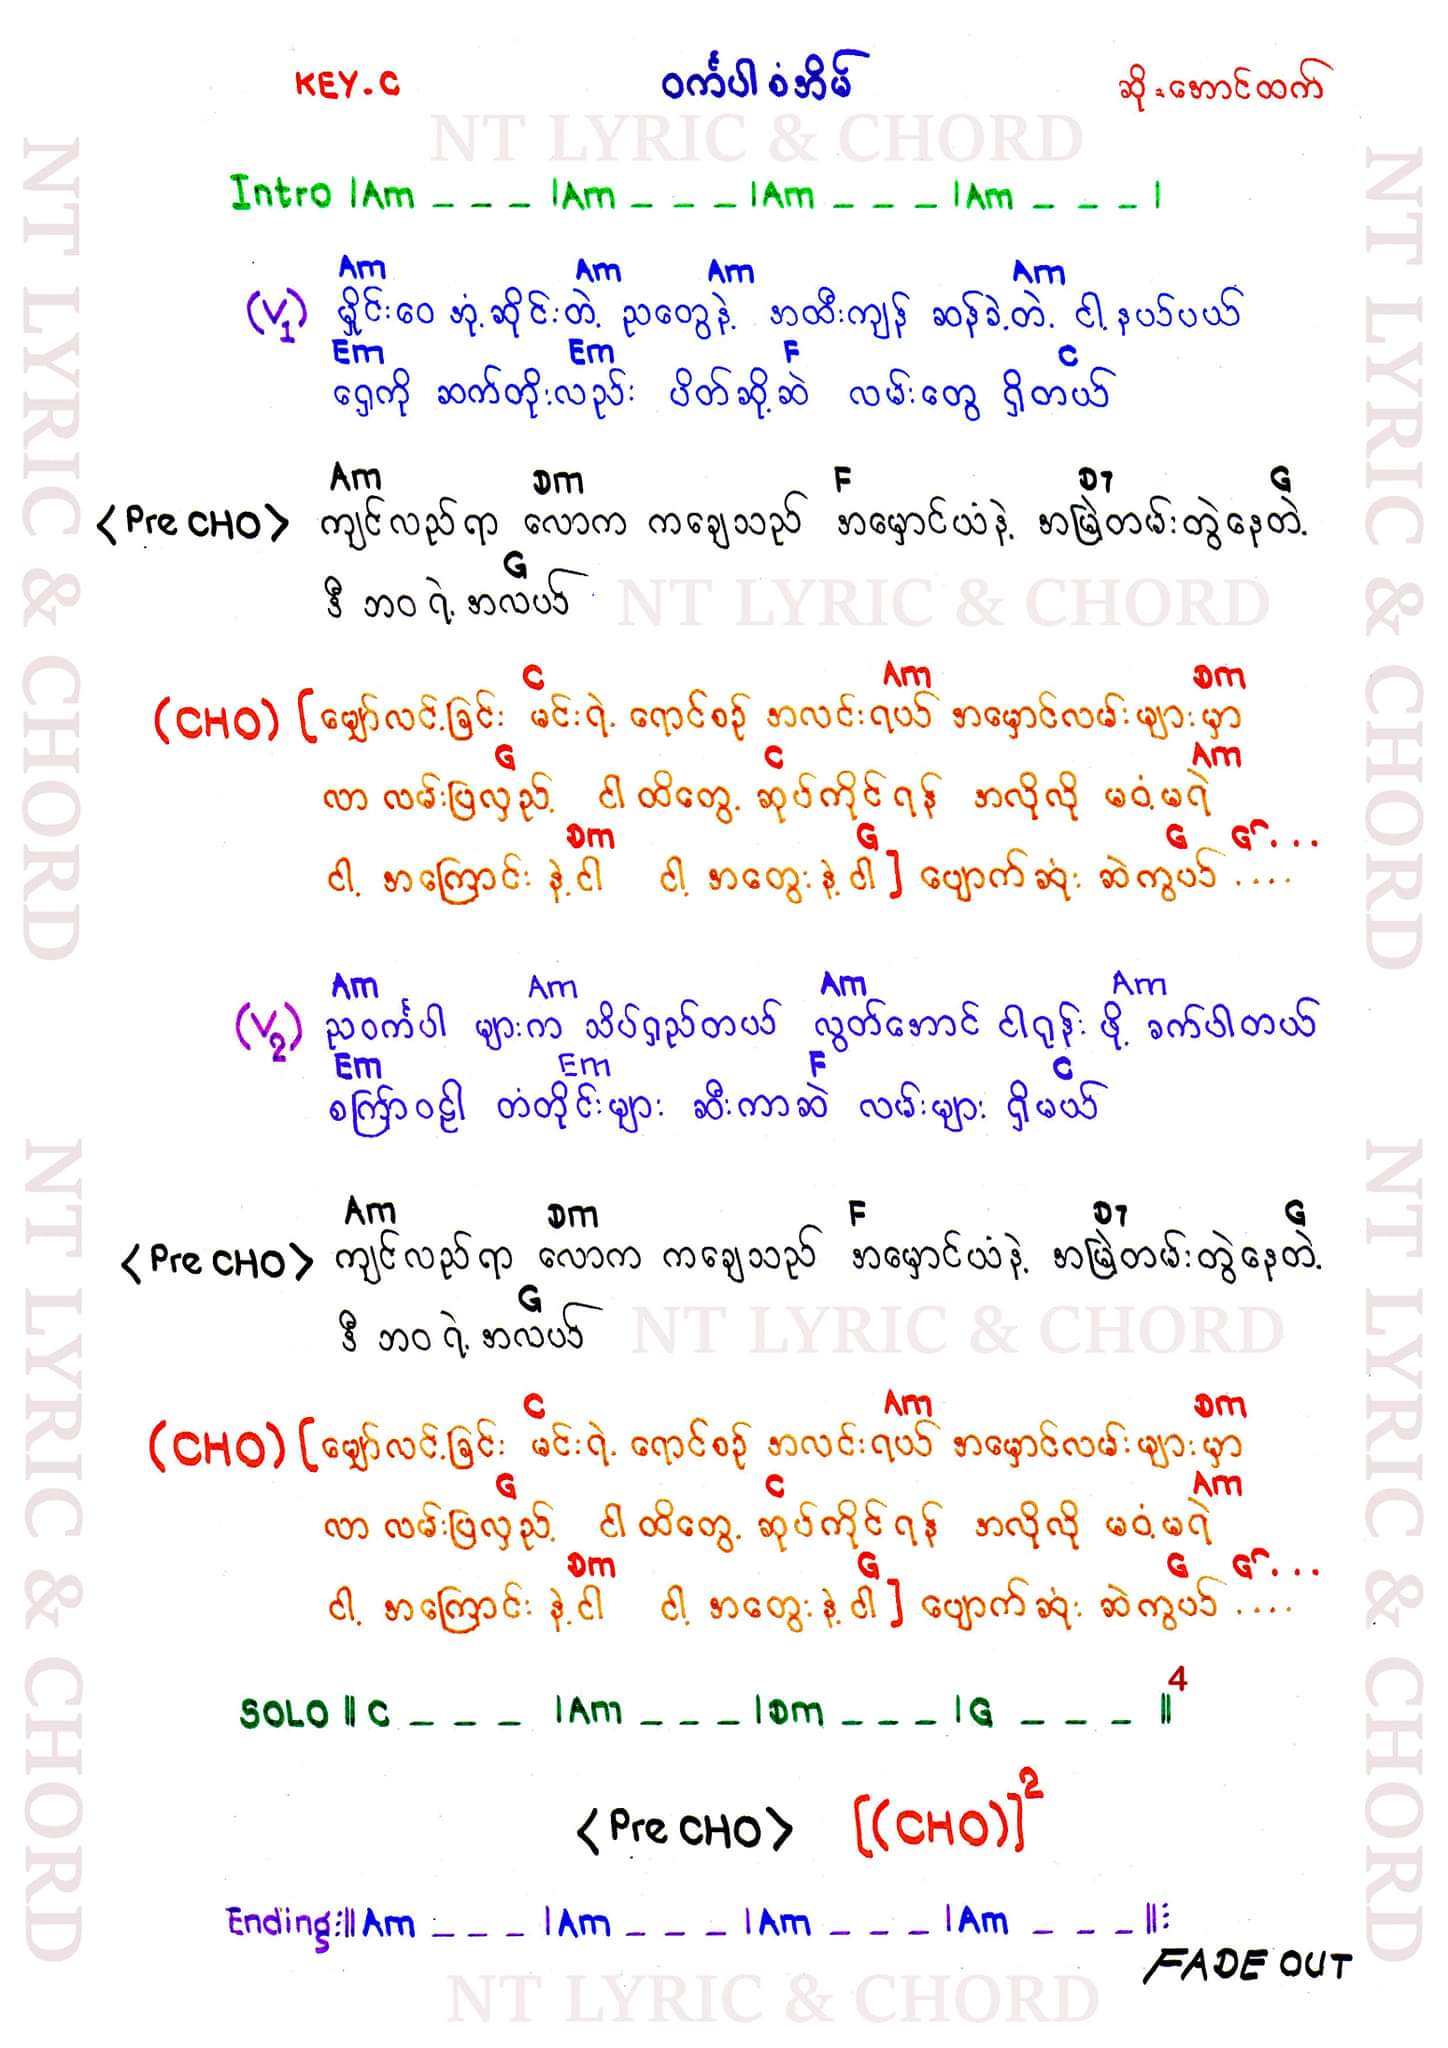 KEY.C ဝင်္ကပါစံအိမ် ဆို = အောင်ထက်
NT LYRIC & CHORD
Intro |Am _ _ _ |Am _ _ _ |Am _ _ _ |Am _ _ _ |
Am Am Am Am
(V1) မှိုင်းဝေ အုံ့ဆိုင်းတဲ့ ညတွေနဲ့ အထီးကျန် ဆန်ခဲ့တဲ့ ငါ့နယ်ပယ်
Em Em F C
ရှေ့ကို ဆက်တိုးလည်း ပိတ်ဆို့ဆဲ လမ်းတွေ ရှိတယ်
Am Dm F D7 G
<Pre CHO> ကျင်လည်ရာ လောက ကချေသည် အမှောင်ယံနဲ့ အမြဲတမ်းတွဲနေတဲ့
G
ဒီ ဘဝ ရဲ့ အလယ်
NT LYRIC & CHORD
C Am Dm
(CHO) [မျှော်လင့်ခြင်း မင်းရဲ့ ရောင်စဉ် အလင်းရယ် အမှောင်လမ်းများမှာ
G C Am
လာ လမ်းပြလှည့် ငါ ထိတွေ့ ဆုပ်ကိုင်ရန် အလိုလို မဝံ့မရဲ
Dm G G G⌒...
ငါ့ အကြောင်း နဲ့ငါ ငါ့ အတွေးနဲ့ ငါ] ပျောက်ဆုံး ဆဲကွယ် ....
Am Am Am Am
(V2) ညဝင်္ကပါ များက သိပ်ရှည်တယ် လွတ်အောင် ငါရုန်း ဖို့ ခက်ပါတယ်
Em Em F C
စကြာဝဠာ တံတိုင်းများ ဆီးကာဆဲ လမ်းများ ရှိမယ်
Am Dm F D7 G
<Pre CHO> ကျင်လည်ရာ လောက ကချေသည် အမှောင်ယံနဲ့ အမြဲတမ်းတွဲနေတဲ့
G
ဒီ ဘဝ ရဲ့ အလယ်
NT LYRIC & CHORD
C Am Dm
(CHO) [မျှော်လင့်ခြင်း မင်းရဲ့ ရောင်စဉ် အလင်းရယ် အမှောင်လမ်းများမှာ
G C Am
လာ လမ်းပြလှည့် ငါ ထိတွေ့ ဆုပ်ကိုင်ရန် အလိုလို မဝံ့မရဲ
Dm G G G⌒...
ငါ့ အကြောင်း နဲ့ငါ ငါ့ အတွေးနဲ့ ငါ] ပျောက်ဆုံး ဆဲကွယ် ....
SOLO || C _ _ _ |Am _ _ _ |Dm _ _ _ |G _ _ _ ||4
<Pre CHO> [(CHO)]2
Ending:||Am _ _ _ |Am _ _ _ |Am _ _ _ |Am _ _ _ ||:
FADE OUT
NT LYRIC & CHORD
NT LYRIC & CHORD
NT LYRIC & CHORD
NT LYRIC & CHORD
NT LYRIC & CHORD